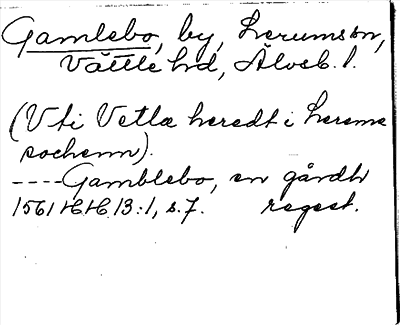 Gamlebo, by, Lerums sn,
Vättle hd, Älvsb. l.
(Vti Vetla heredt i Lerems
sochenn).
----Gamblebo, en gårdh
1561 HH 13:1, s.7. regest.